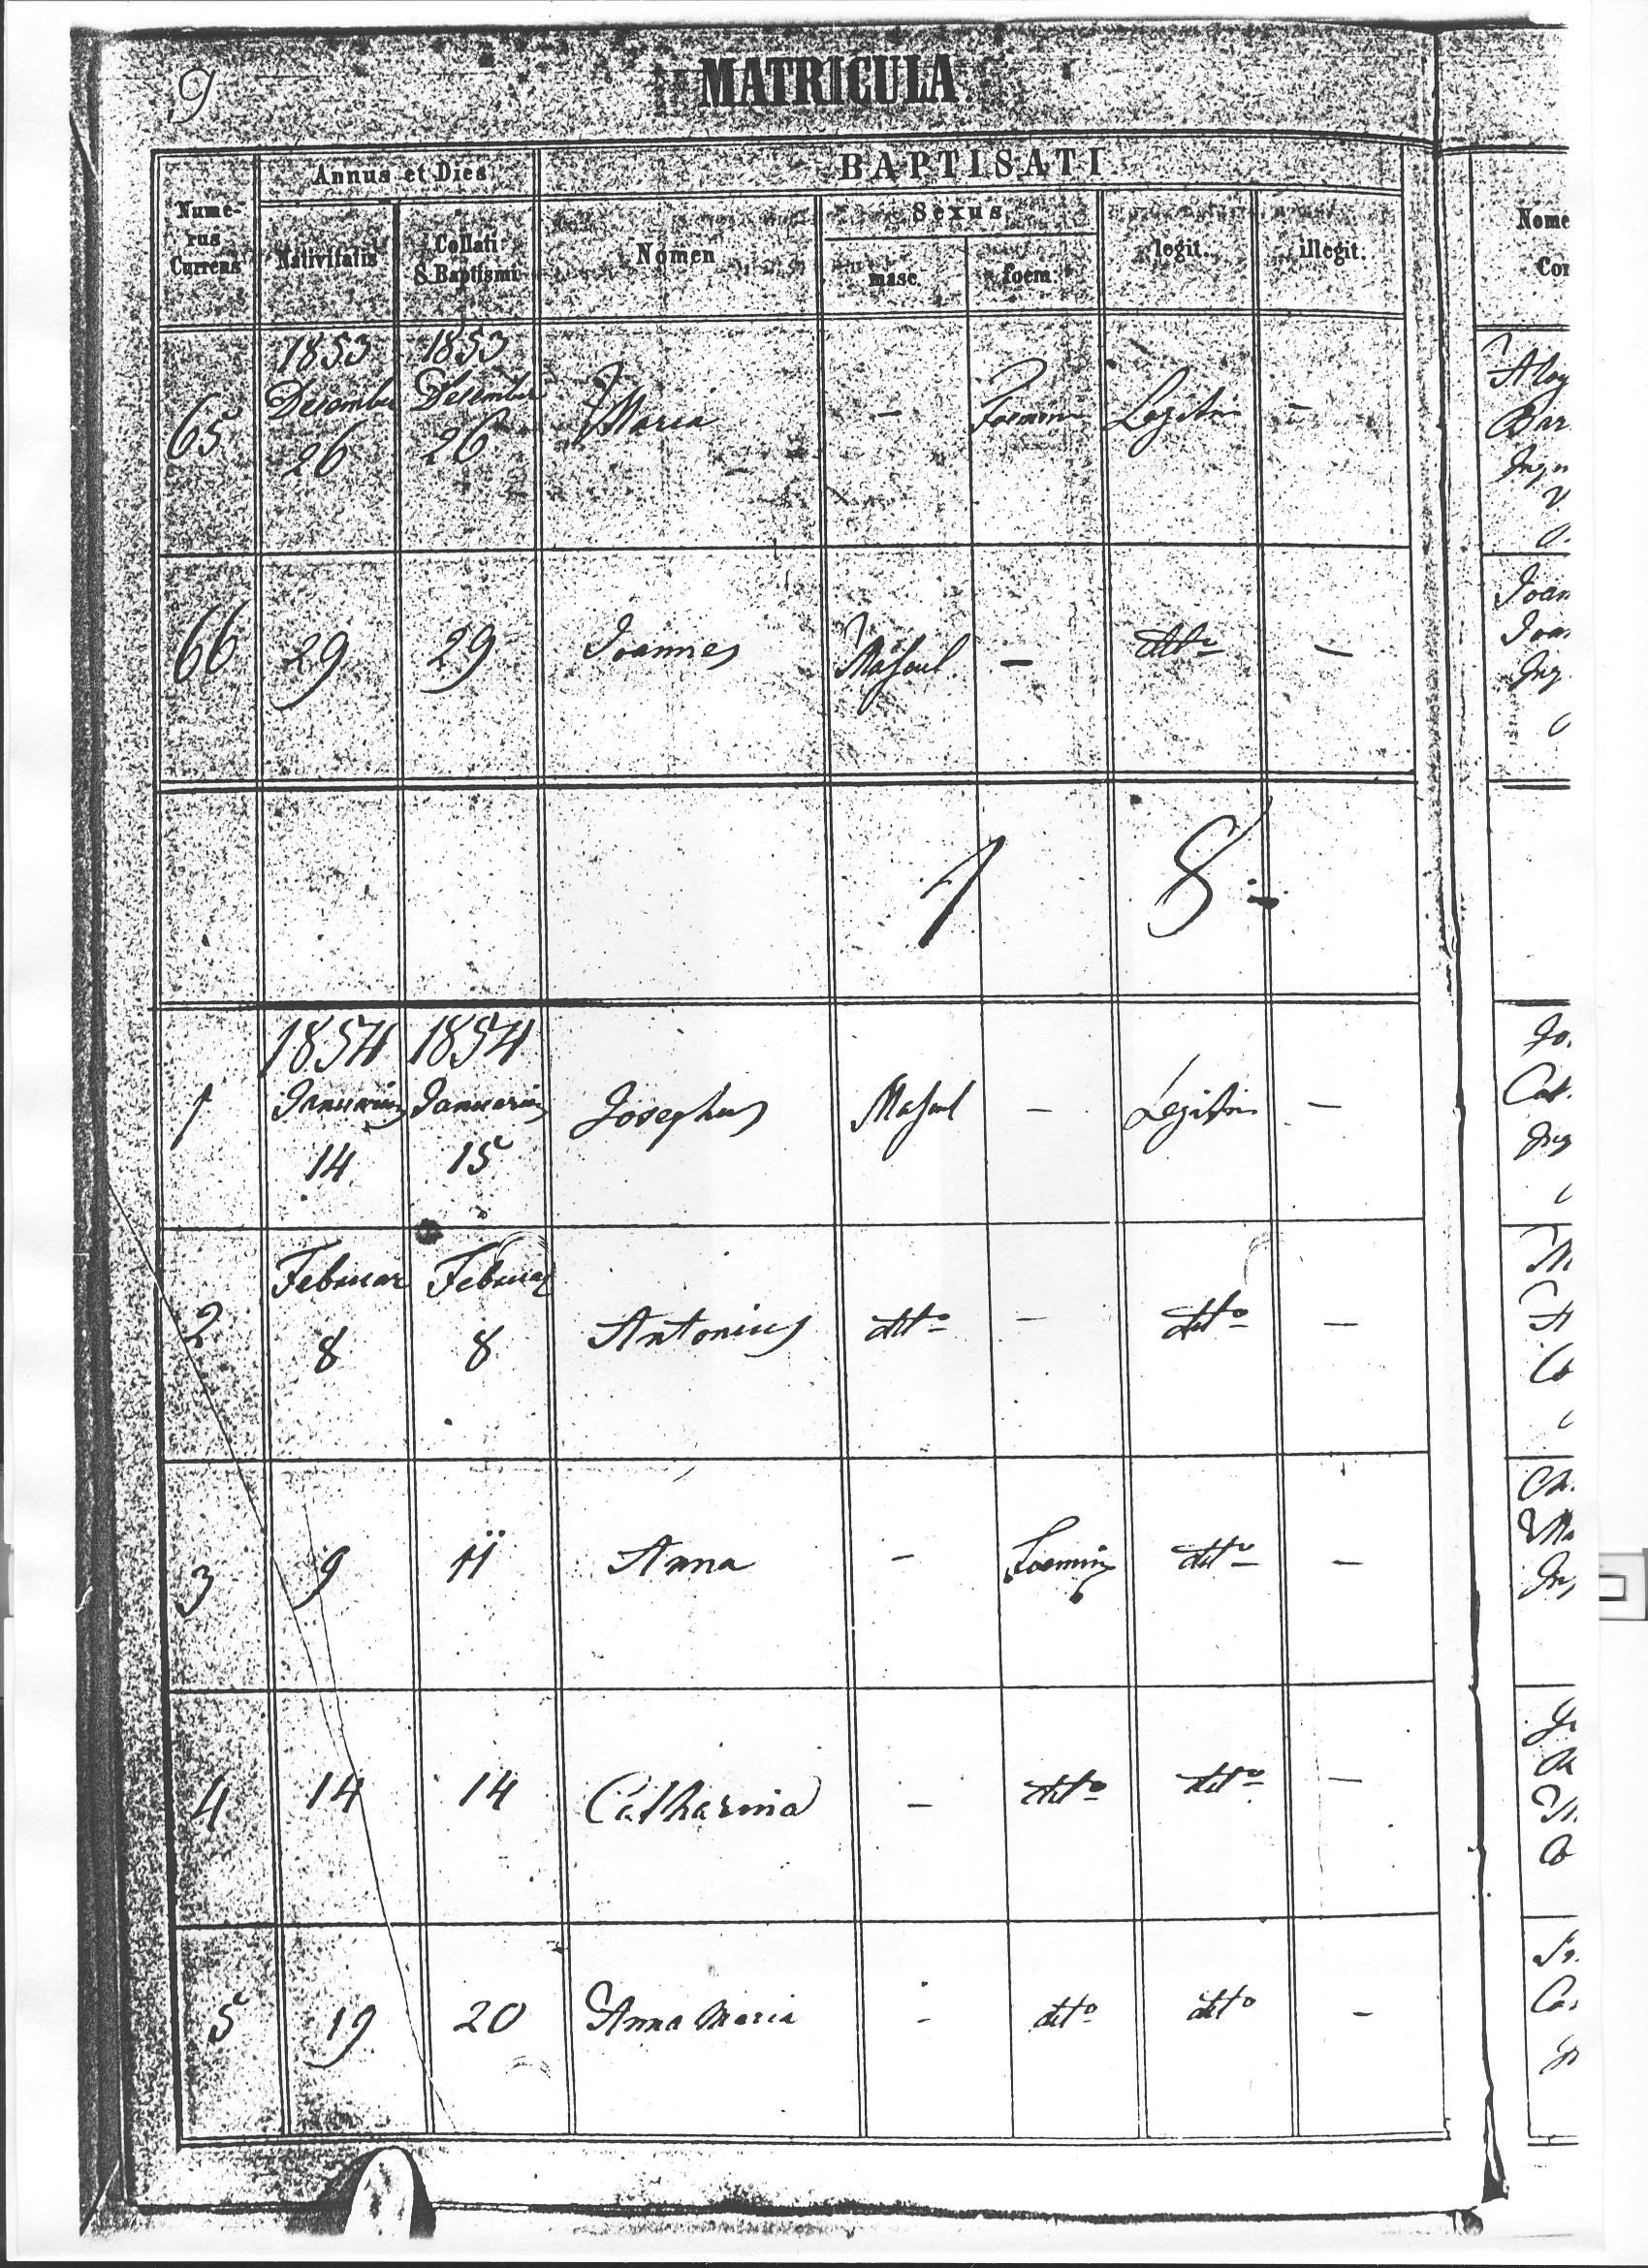 9
MATRICULA.
Nume-
rus
Currens
Annus et Dies
Nativitatis
Collati
S. Baptismi
BAPTISATI
Nomen
Sexus
masc.
foem.
legit.
illegit.
Nome
Cor
65
1853
December
26
1853
December
26
Maria
-
Foemin
Legitim
-
Aloy
Bar
66
29
29
Joannes
Mascul
-
dtto
-
Joan
Joa
Inq
1 8
1
1854
Januarius
14
1854
Januarius
15
Josephus
Mascul
-
Legitim
-
Jo.
Cat.
Inq
2
Februar
8
Februar
8
Antonius
dtto
-
dtto
-
Co
3
9
11
Anna
-
Foemin
dtto
-
4
14
14
Catharina
-
dtto
dtto
-
Co
5
19
20
Anna Maria
-
dtto
dtto
-